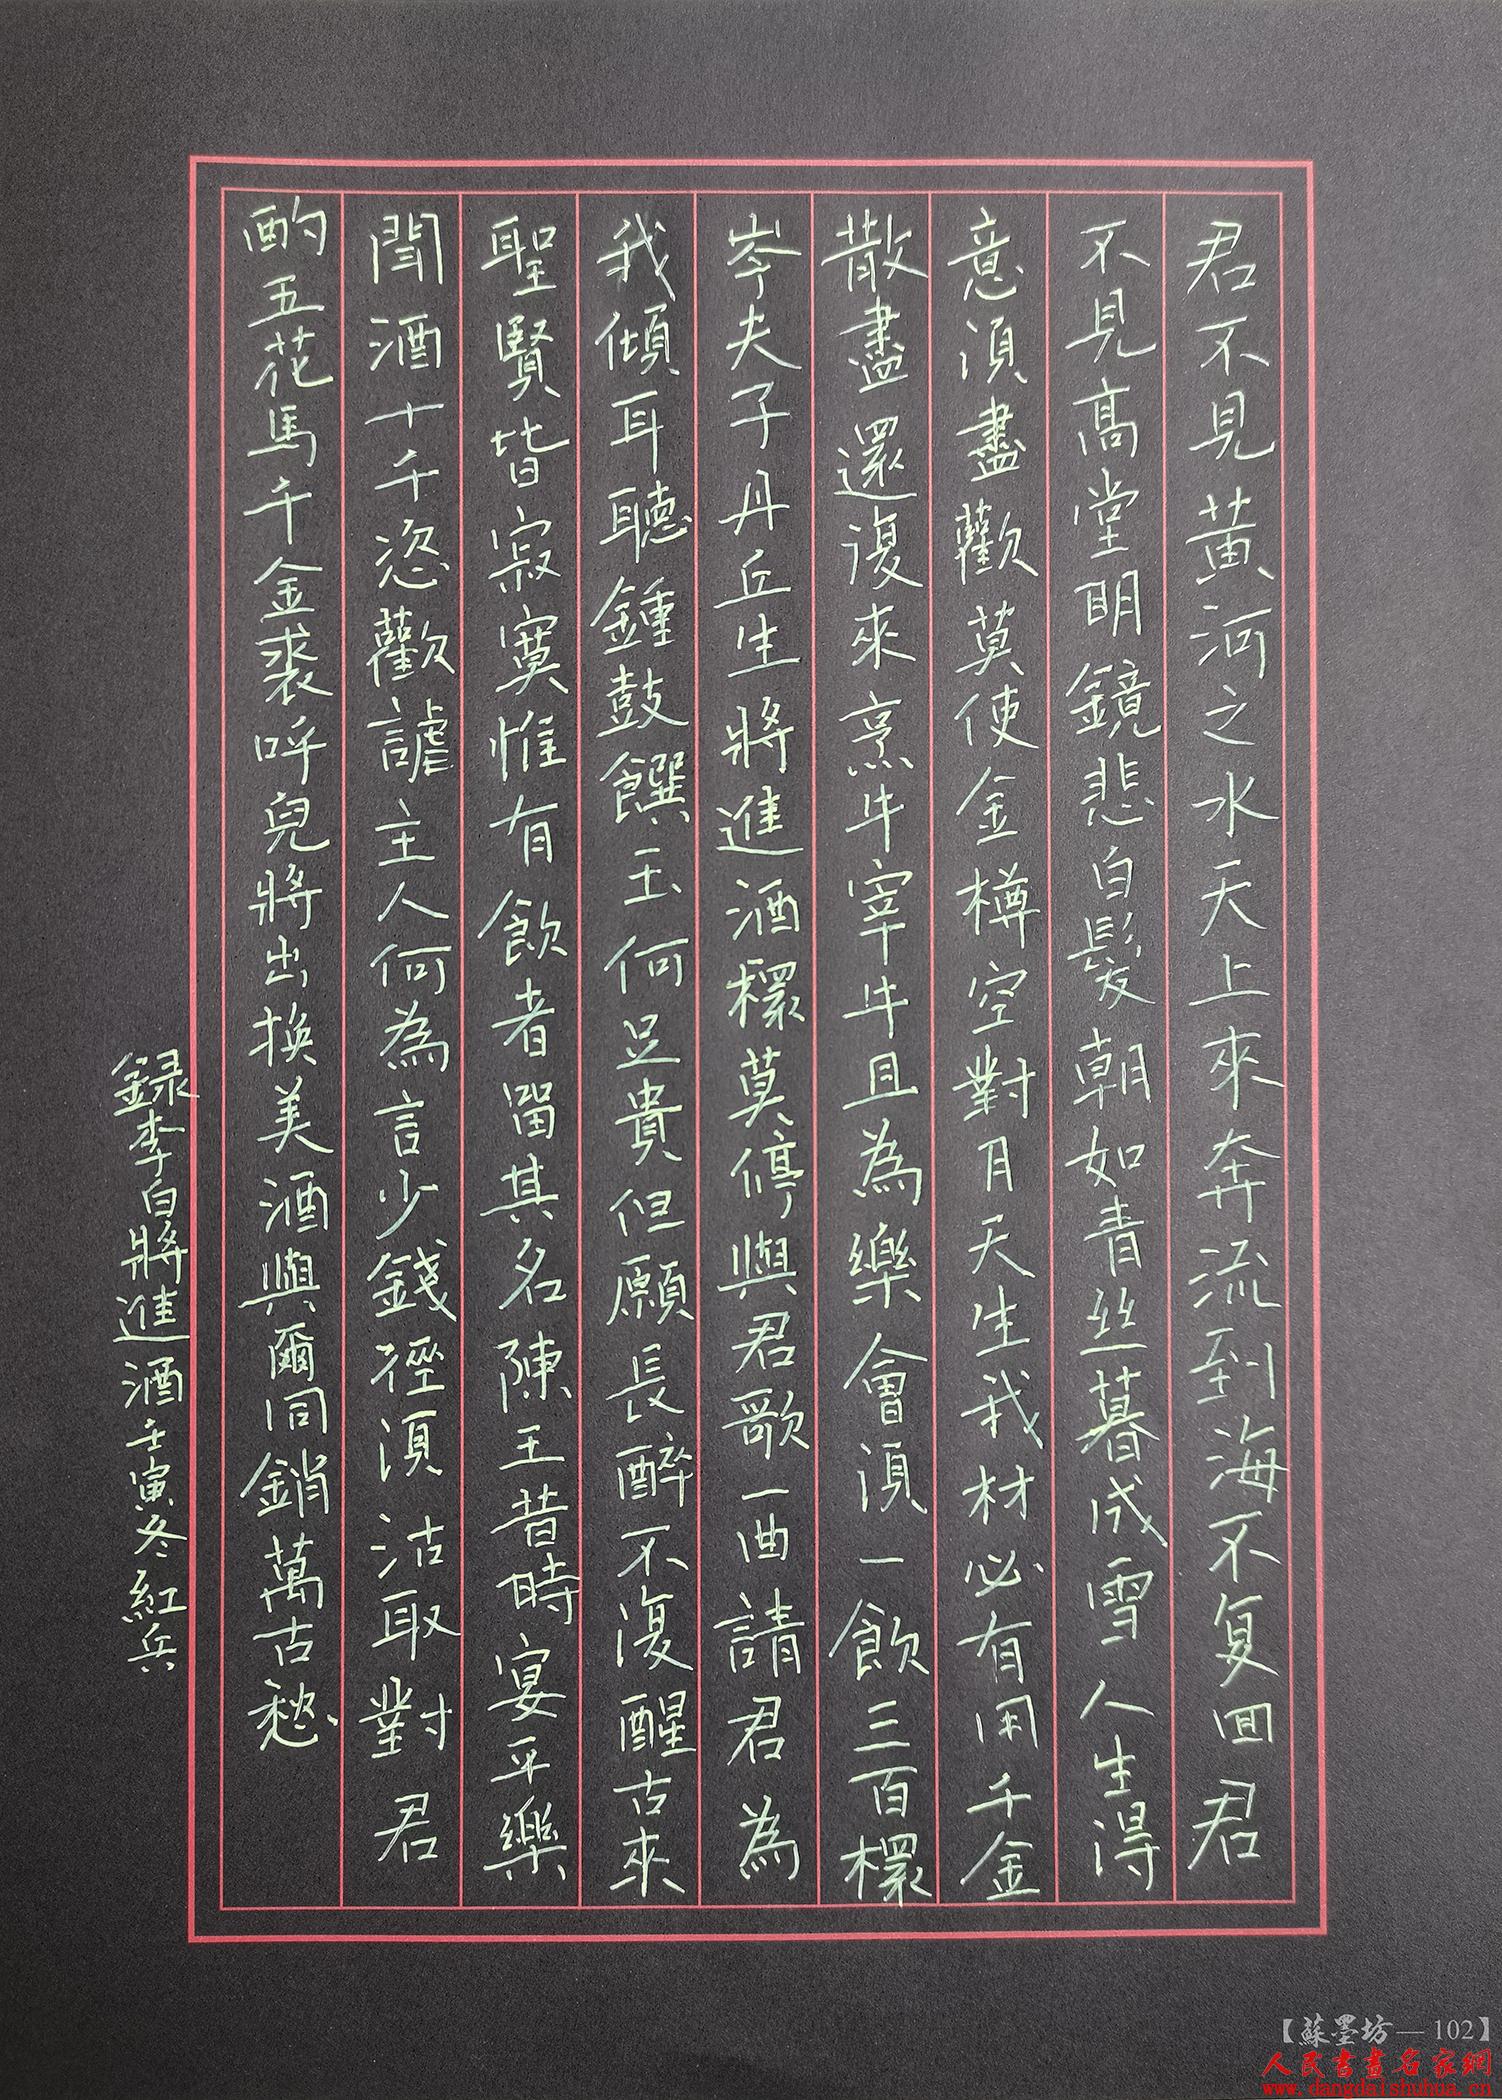 君不見黃河之水天上來奔流到海不复回君
不見高堂明鏡悲白髮朝如青丝暮成雪人生得
意須盡歡莫使金樽空對月天生我材必有用千金
散盡還復來烹牛宰牛且為樂會須一飲三百櫰
岑夫子丹丘生將進酒櫰莫停與君歌一酉請君為
我傾耳聽鍾鼓饌玉何足貴但願長醉不復醒古來
聖賢皆寂寞惟有飲者留其名陳王昔時宴平樂
聞酒十千恣歡謔主人何為言少錢徑須沽取對君
酌五花馬千金裘呼兒將出换美酒與爾同銷萬古愁
録李白將進酒壬寅冬紅兵
【蘇墨坊—102】
人民書畫名家網
www.dangdaishuhua.cn